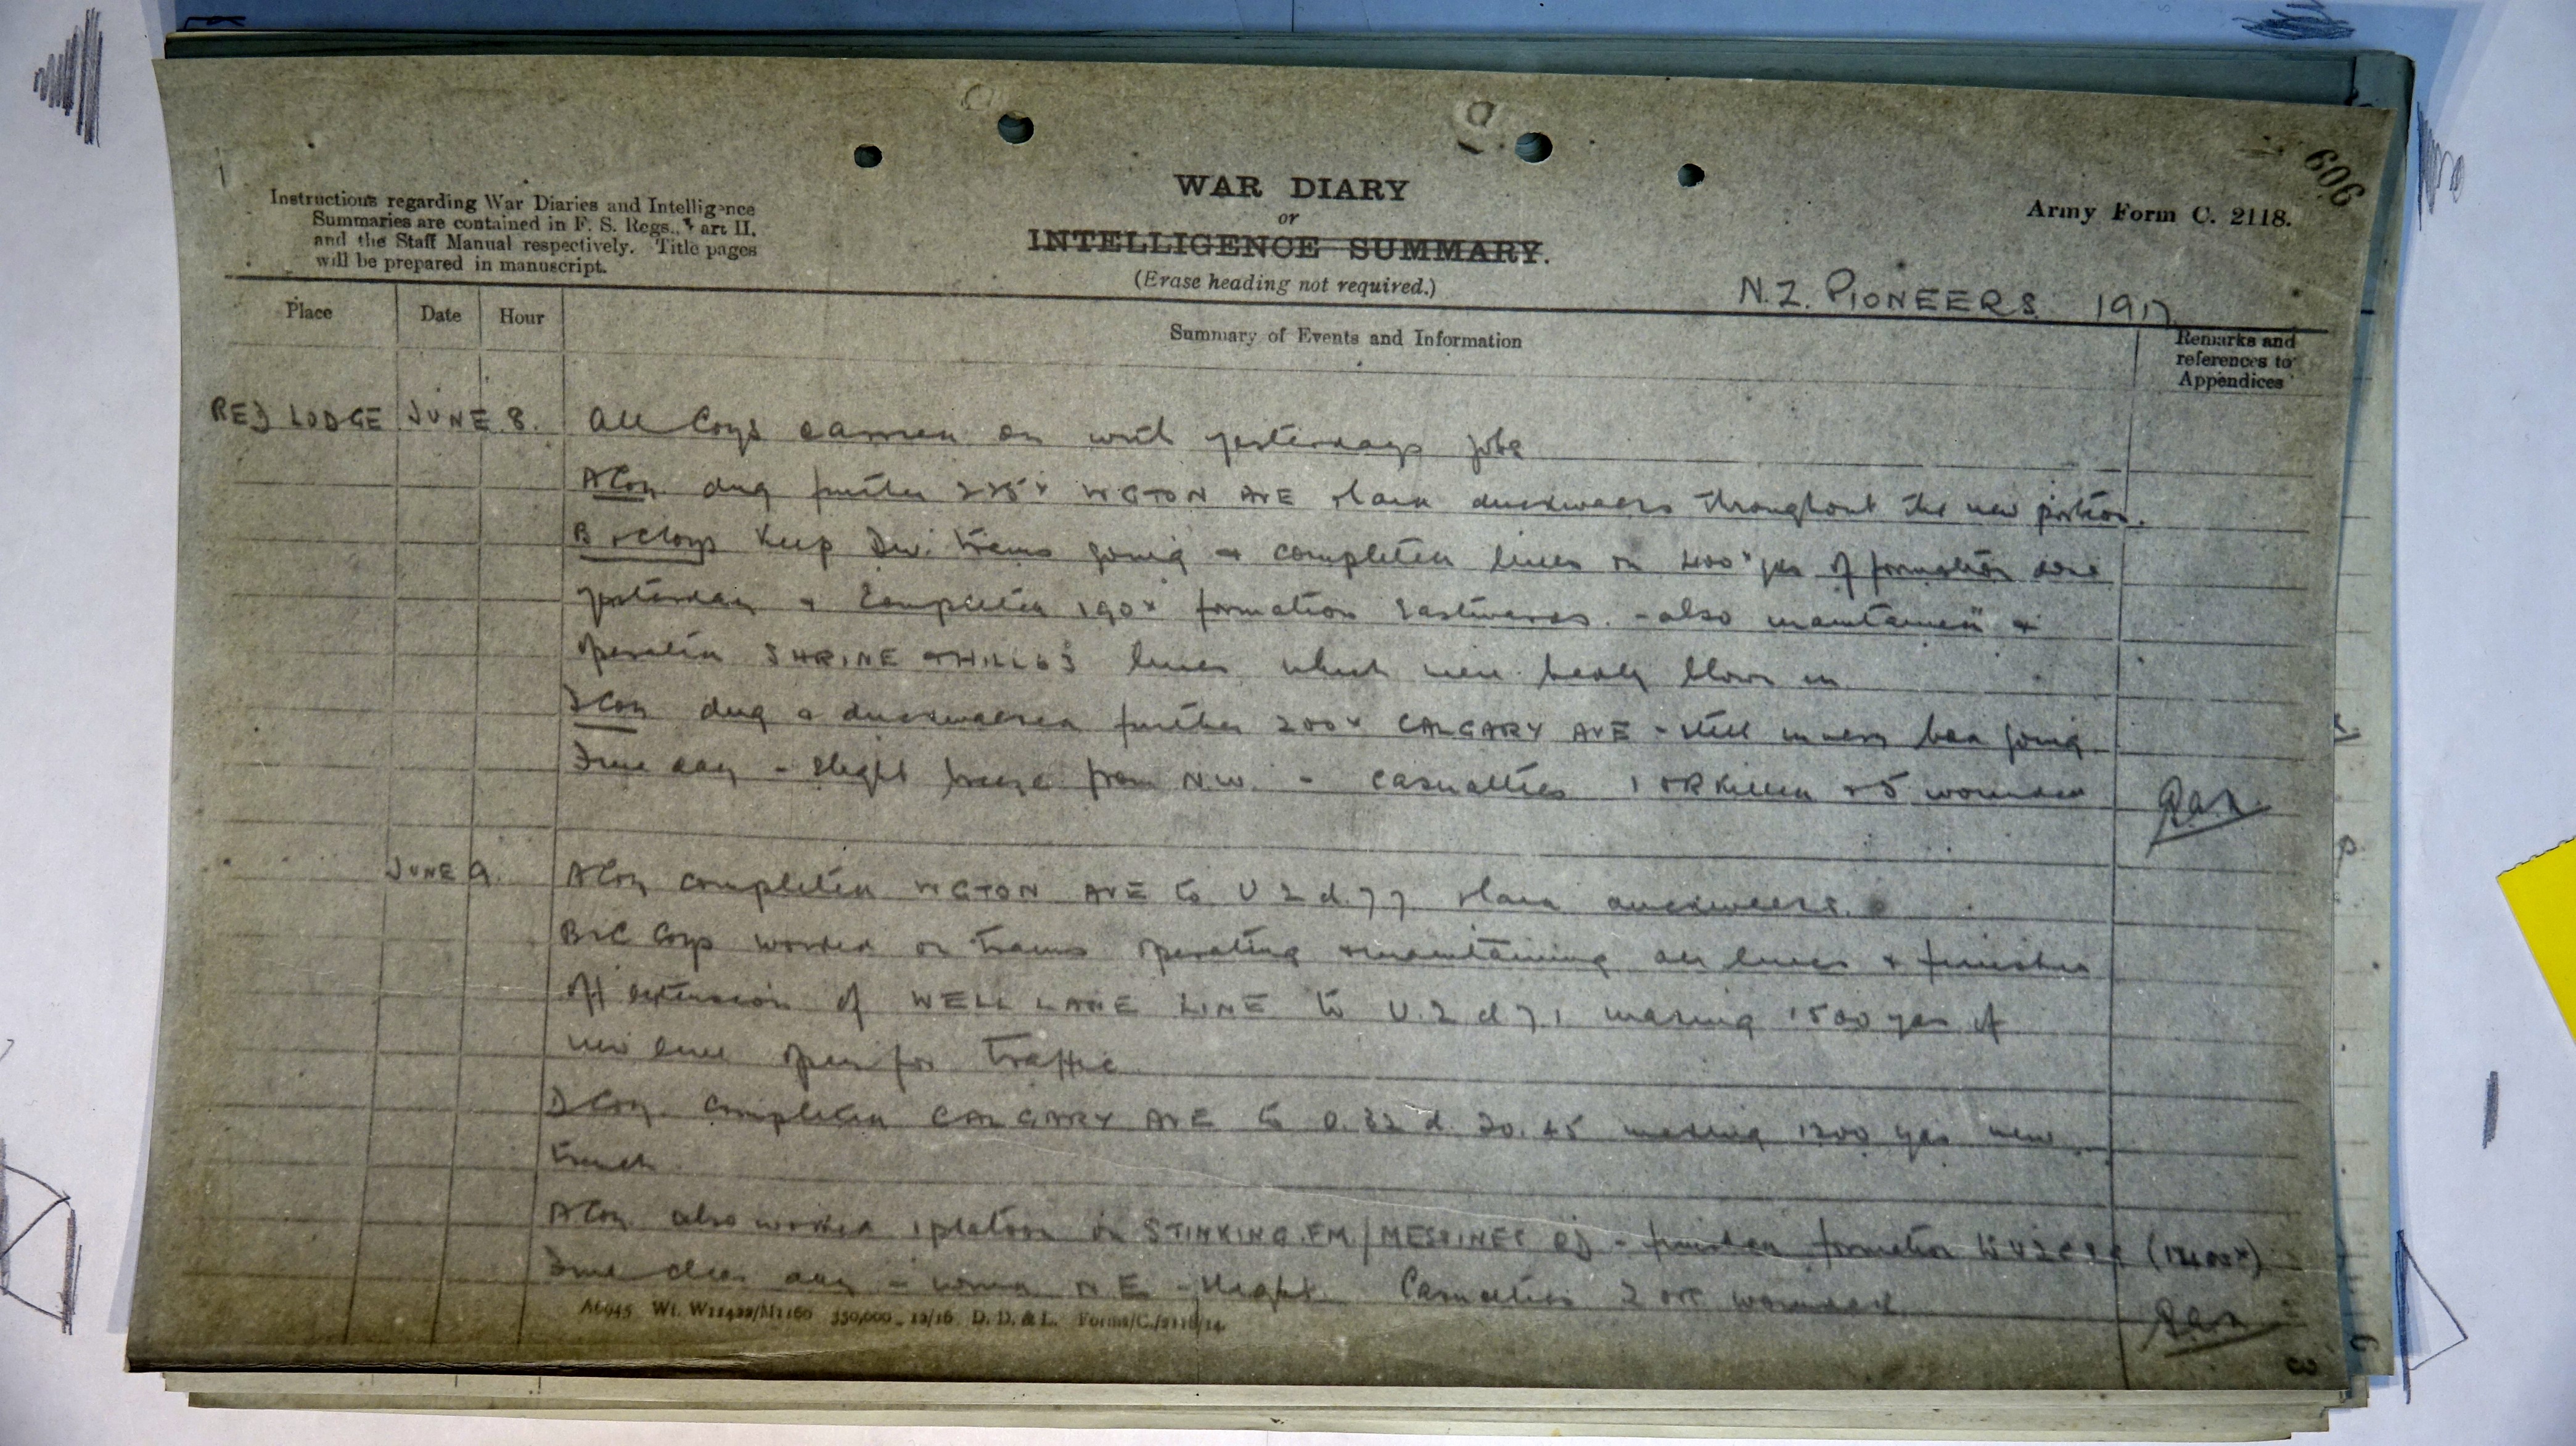 606
WAR DIARY
or
INTELLIGENCE SUMMARY.
(Erase heading not required.)
Instructions regarding War Diaries and Intelligence
Summaries are contained in F. S. Regs., Part II.
and the Staff Manual respectively. Title pages
will be prepared in manuscript.
Army Form C. 2118.
N.Z. PIONEERS. 1917
Place
Date
Hour
Summary of Events and Information
Remarks and
references to
Appendices
RED LODGE JUNE 8. All Coys carried on with yesterdays jobs
A Coy. dug further 225x WGTON AVE + laid duckwalks throughout the new portion.
B + C Coys keep Div. trams going + completed lines on 400x yds of formation done
yesterday + completed 190x formation Eastwards. - also maintained +
operated SHRINE + HILL 63 lines which were badly blown in
D Coy dug + duckwalked further 200x CALGARY AVE - still very bad going
Fine day - slight breeze from N.W. - casualties 1 OR killed + 5 wounded
JUNE 9. A Coy completed WGTON AVE to U 2 d. 7 7 + laid duckwalks.
B + C Coys worked on trams operating + maintaining all lines + finished
off extension of WELL LANE LINE to U. 2 d 7 1 making 1500 yds of
new line open for traffic
D Coy. completed CALGARY AVE to O. 32 d. 20. 45 making 1200 yds new
trench
A Coy also worked 1 platoon on STINKING FM / MESSINES RD - finished formation to (1400x)
Fine clear day - wind N.E. - slight. Casualties 2 OR wounded
A6945 Wt. W11422/M1160 350,000 12/16 D. D. & L. Forms/C./2118/14.